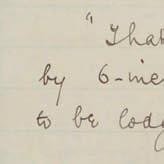 " That
by 6-in
to be lod